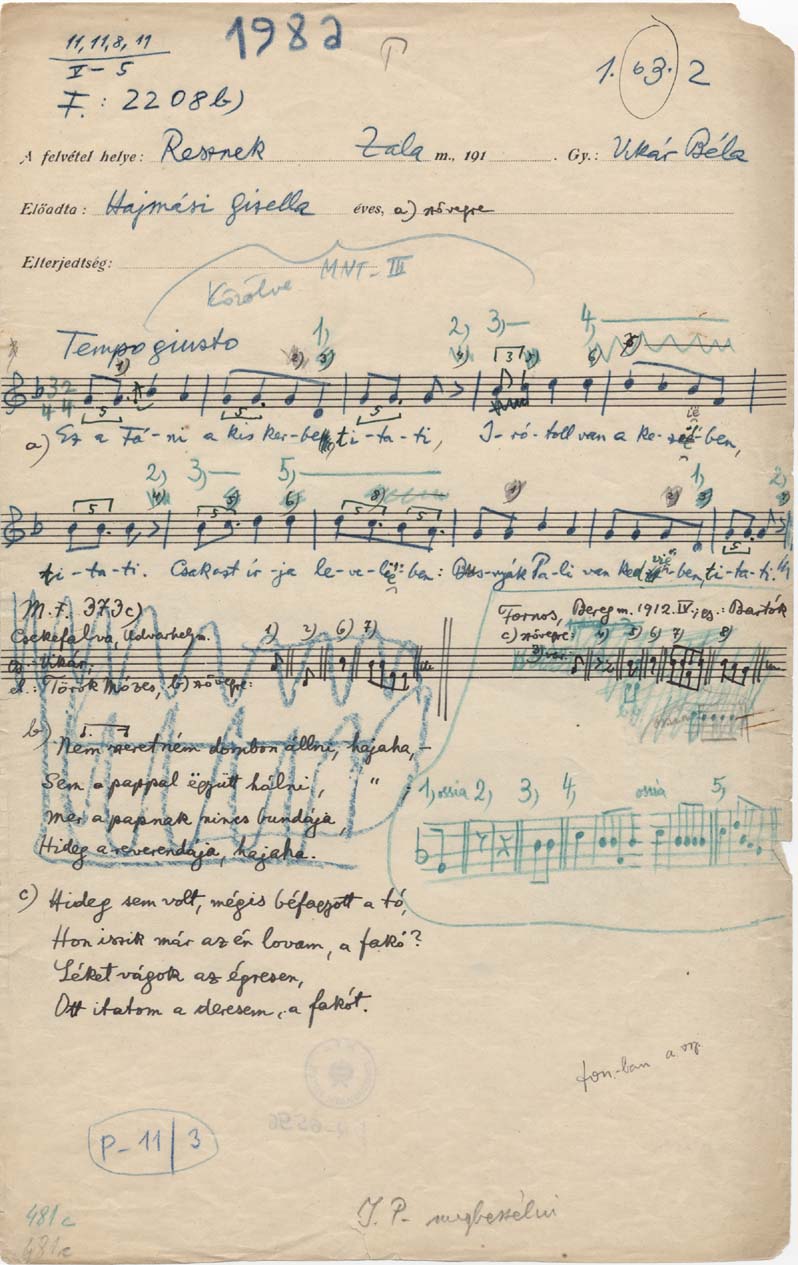 11, 11, 8, 11
V-5
1982
1. b3. 2
F.: 2208b)
A felvétel helye: Resznek Zala m., 191 . Gy.: Vikár Béla
Előadta: Hajmási Gizella éves, a) szövegre
Elterjedtség:
Közölve MNT-III
1, 2, 3, 4,
Tempo giusto
a) Ez a Fá-ni a kis ker-be, ti-ta-ti, I-ró-toll van a ke-zié-ben,
2, 3, 5, 1, 2,
ti-ta-ti. Csak azt ír-ja le-ve-lié-ben: Pali van ked-viében, ti-ta-ti.
M.F. 373c)
Csekefalva, Udvarhely m.
gy. Vikár.
el.: Török Mózes, b) szövegre:
1) 3) 6) 7)
Tornos, Bereg m. 1912. IV.; gy.: Bartók
c) szövegre: 4) 5) 6) 7) 8)
b) Nem szeretném dombon állni, hajaha,-
Sem a pappal ëgyütt hálni, "
Mer a papnak nincs bundája,
Hideg a reverendája, hajaha.
1, ossia 2, 3, 4, ossia 5,
c) Hideg sem volt, mégis béfagyott a tó,
Hon iszik már az én lovam, a fakó?
Léket vágok az égresen,
Ott itatom a deresem, a fakót.
fon.-ban a
P-11/3
481c
481c
J.P. megbeszélni